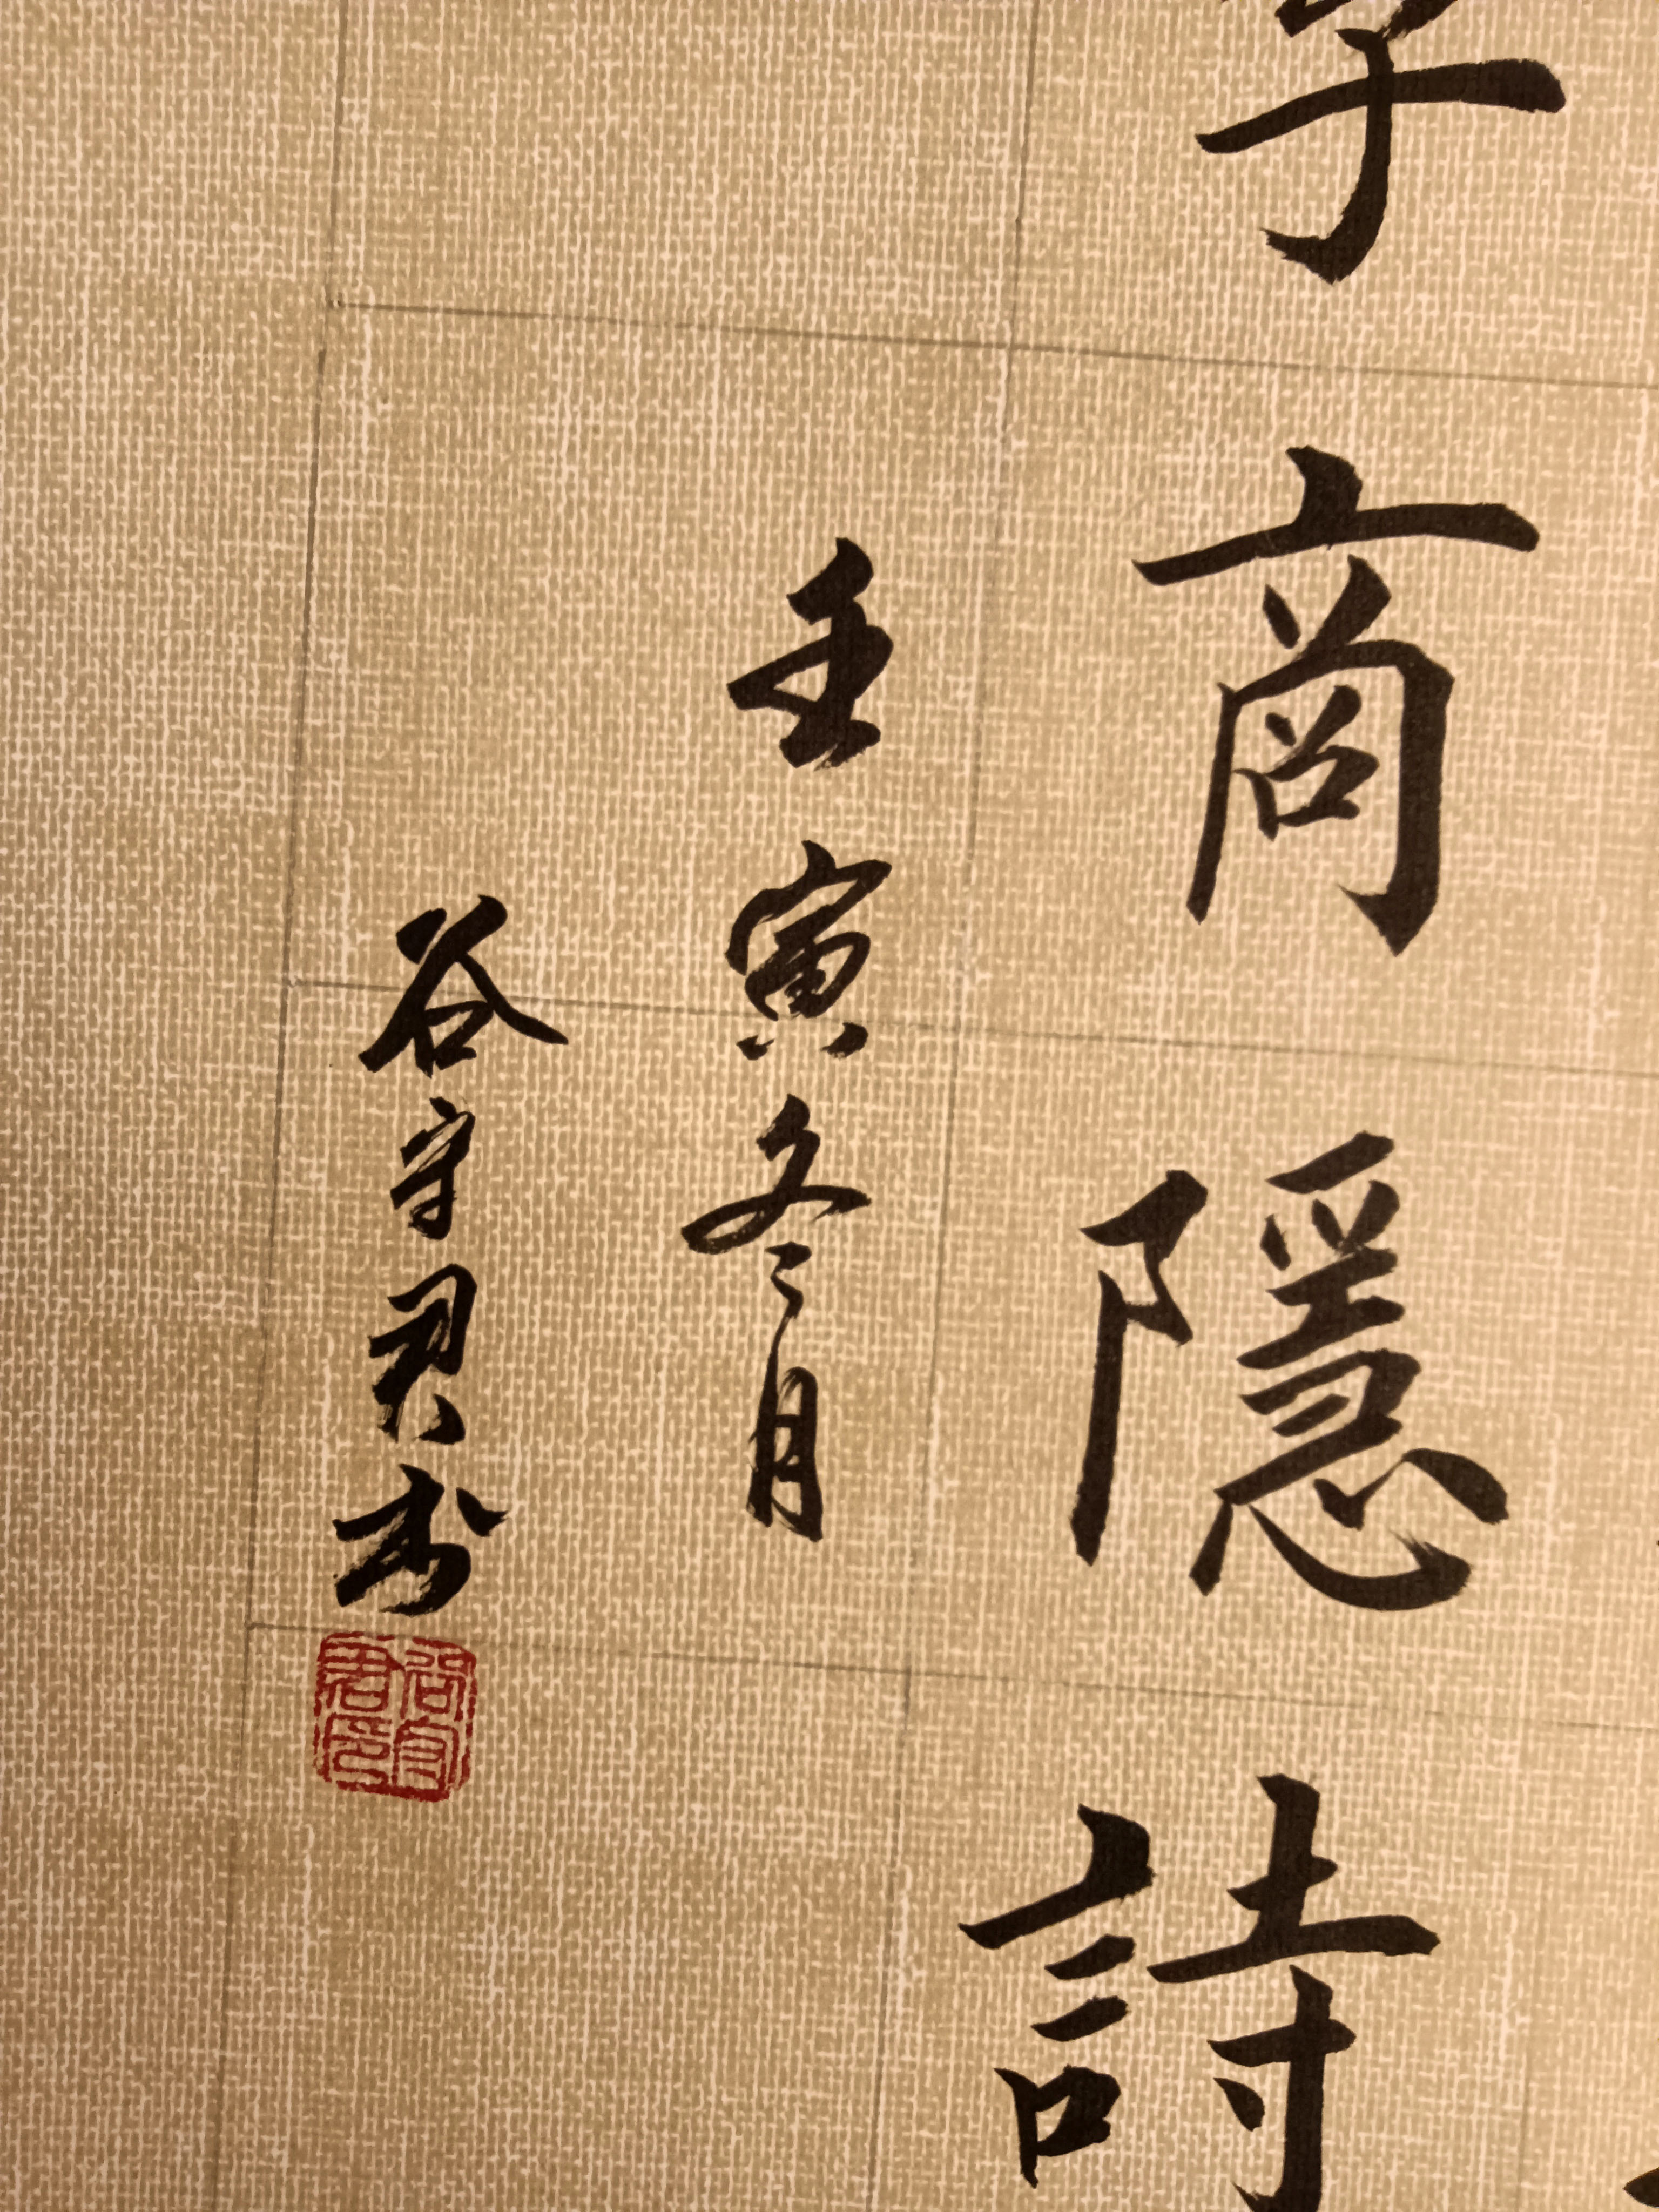 李商隱詩
壬寅冬月
谷守君书
谷守君印